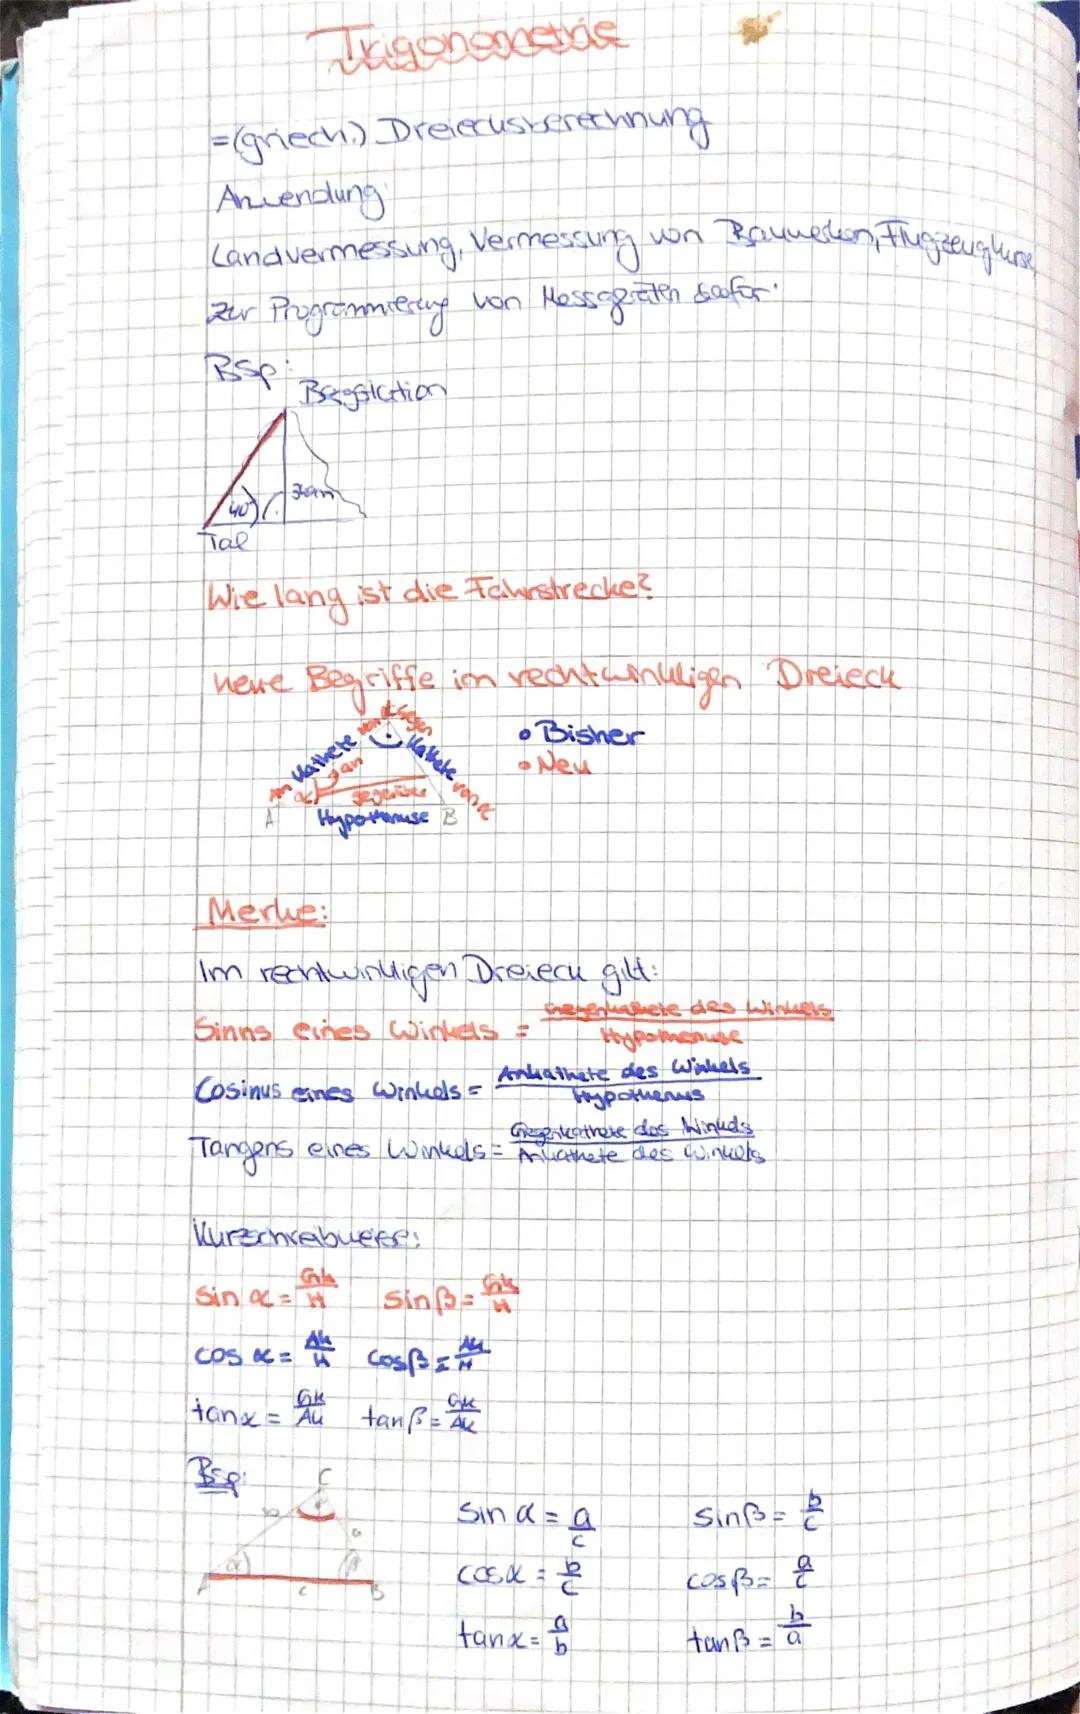 Trigonometrie
=(griech.) Dreiecksberechnung
Anwendung
Landvermessung, Vermessung von Bauwerken, Flugzeugkurse,
zur Programmierung von Messgeräten
BSp:
Bergstation
40°
Tal
Wie lang ist die Fahrstrecke?
neue Begriffe im rechtwinkligen Dreieck
• Bisher
• Neu
Kathete
Kathete
an
α
gegenüber
von α
A
Hypotenuse
B
Merke:
Im rechtwinkligen Dreieck gilt:
Sinus eines Winkels = Gegenkathete des Winkels / Hypotenuse
Cosinus eines Winkels = Ankathete des Winkels / Hypothenus
Tangens eines Winkels = Gegenkathete des Winkels / Ankathete des Winkels
Kurzschreibweise:
sin α = Gk/H sin β = Gk/H
cos α = Ak/H cos β = Ak/H
tan α = Gk/Ak tan β = Gk/Ak
Bsp:
C
b
a
α
β
A
c
B
sin α = a/c sin β = b/c
cos α = b/c cos β = a/c
tan α = a/b tan β = b/a